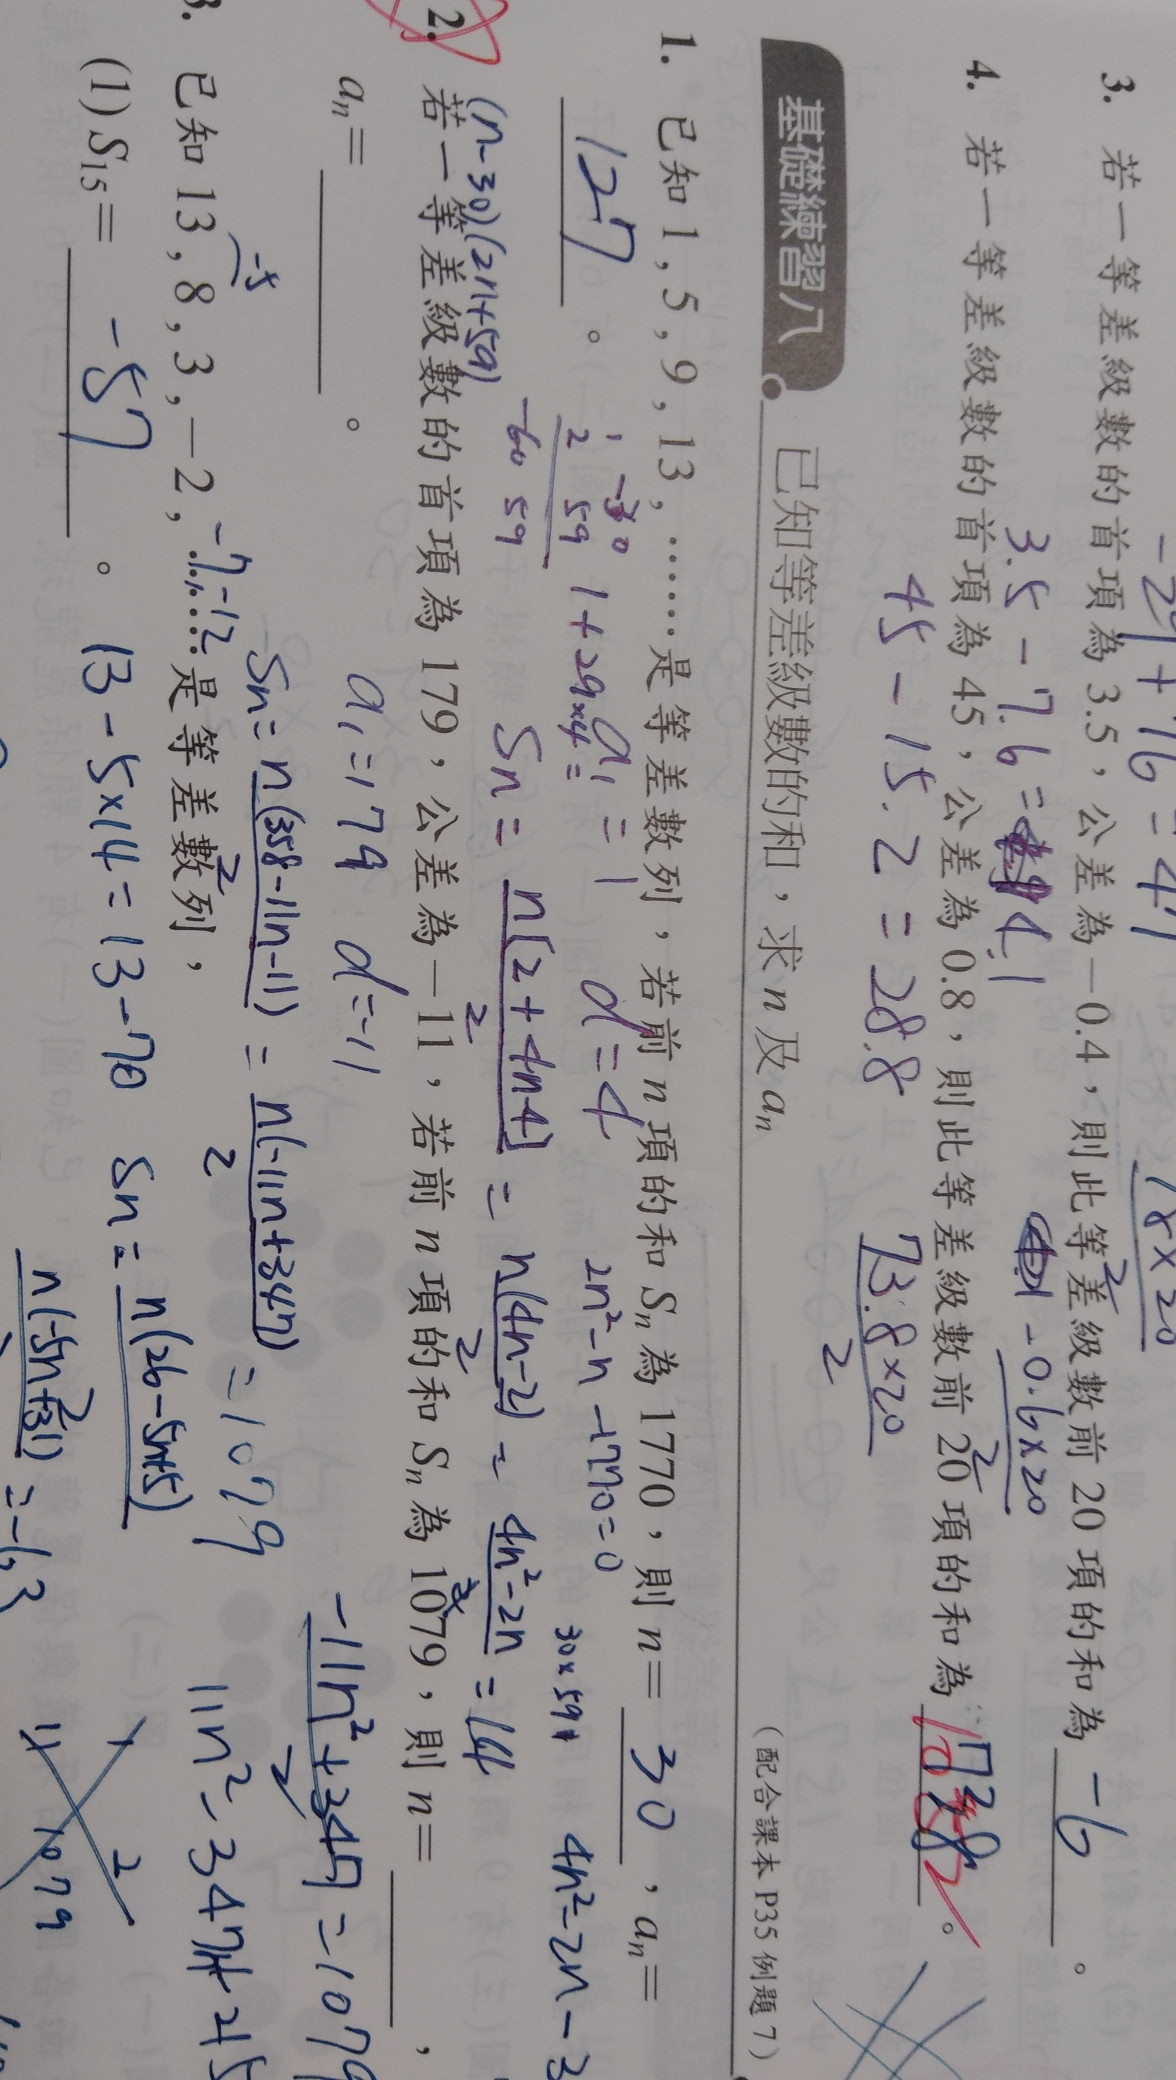 -29+76=47
18×20
3. 若一等差級數的首項為 3.5，公差為 -0.4，則此等差級數前 20 項的和為 -6 。
3.5-7.6= 4.1
-0.6×20
2
4. 若一等差級數的首項為 45，公差為 0.8，則此等差級數前 20 項的和為 738 。
45-15.2=28.8
73.8×20
2
基礎練習八 已知等差級數的和，求 n 及 aₙ
（配合課本 P35 例題 7）
1. 已知 1，5，9，13，……是等差數列，若前 n 項的和 Sₙ 為 1770，則 n= 30 ，aₙ=
127 。
1 -30
2 59
-60 59
1+29×4=
a₁=1 d=4
2n²-n-1770=0
30×59
4n²-2n-3
Sn= n[2+4n-4] = n(4n-2) = 4n²-2n
2 2 2
(n-30)(2n+59)
2. 若一等差級數的首項為 179，公差為 -11，若前 n 項的和 Sₙ 為 1079，則 n= ，
aₙ= 。
a₁=179 d=-11
-11n²+347 =1079
2
Sn= n(358-11n-11) = n(-11n+347) =1079
2 2
11n²-347n+215
3. 已知 13，8，3，-2，……是等差數列，
-5
-7 -12
(1) S₁₅= -57 。
13-5×14=13-70
Sn= n(26-5n+5)
2
n(-5n+31)
1 2
11 1079